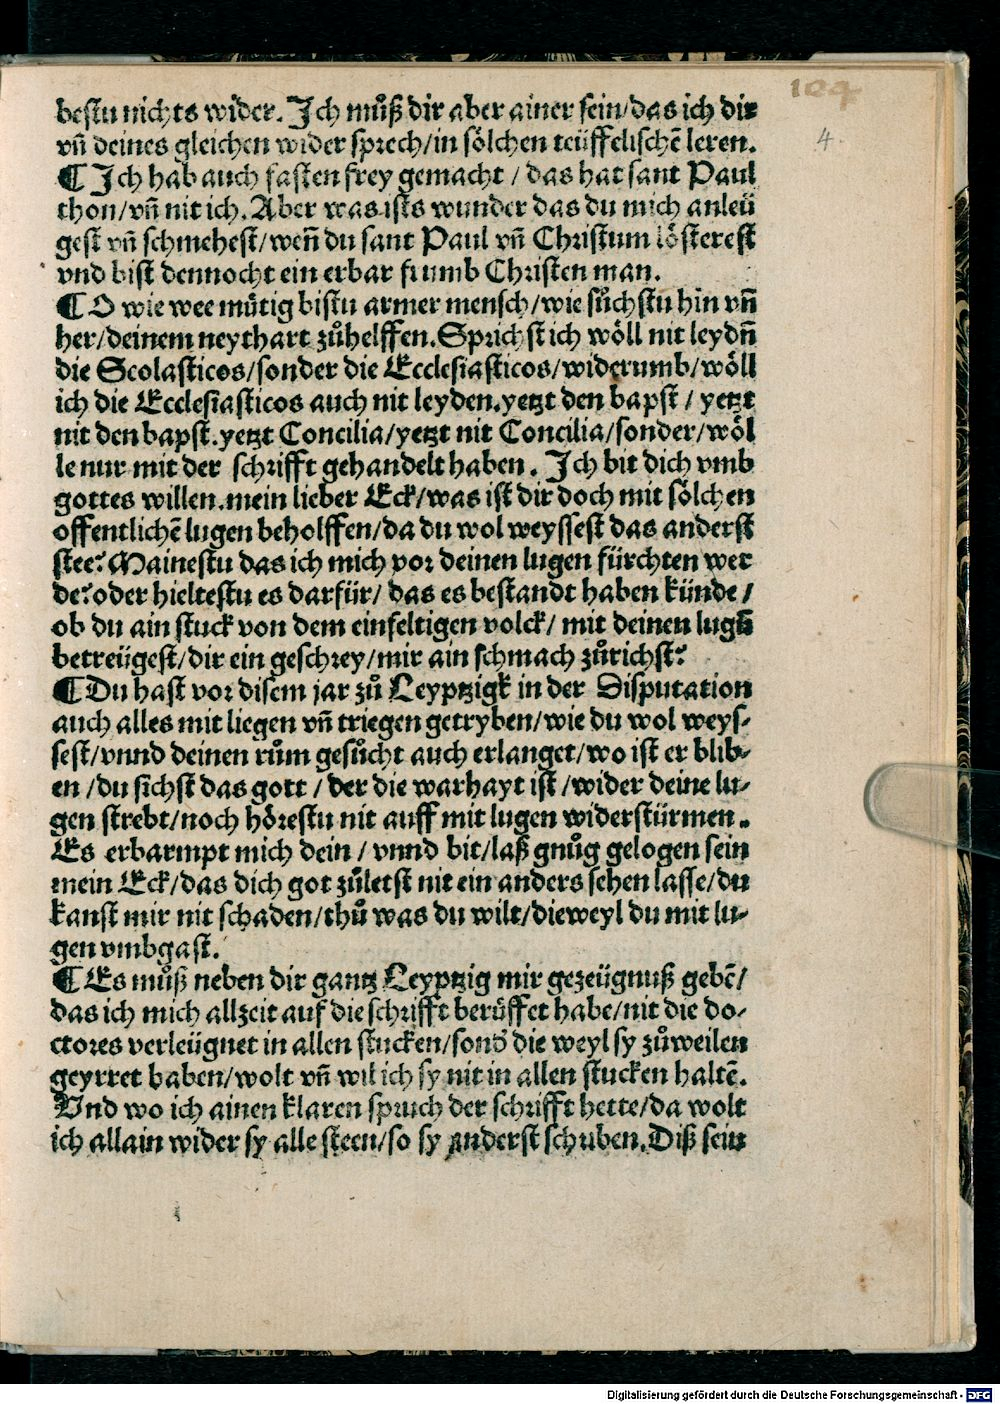 104
4.
bestu nichts wider. Ich můß dir aber ainer sein/das ich dir
vn̄ deines gleichen wider sprech/in sölchen teüffelischē leren.
¶ Ich hab auch fasten frey gemacht / das hat sant Paul
thon/vn̄ nit ich. Aber was ists wunder das du mich anleü
gest vn̄ schmehest/wen̄ du sant Paul vn̄ Christum lösterest
vnd bist dennocht ein erbar frumb Christen man.
¶ O wie wee mütig bistu armer mensch/wie sůchstu hin vn̄
her/deinem neythart zůhelffen. Sprichst ich wöll nit leydn̄
die Scolasticos/sonder die Ecclesiasticos/widerumb/wöll
ich die Ecclesiasticos auch nit leyden. yetzt den bapst / yetzt
nit den bapst. yetzt Concilia/yetzt nit Concilia/sonder/wöl
le nur mit der schrifft gehandelt haben. Ich bit dich vmb
gottes willen. mein lieber Eck/was ist dir doch mit sölchen
offentlichē lugen beholffen/da du wol weyssest das anderst
stee? Mainestu das ich mich vor deinen lugen fürchten wer
de? oder hieltestu es darfür/ das es bestandt haben künde /
ob du ain stuck von dem einfeltigen volck/ mit deinen lugn̄
betreügest/dir ein geschrey/mir ain schmach zůrichst?
¶ Du hast vor disem jar zů Leyptzigk in der Disputation
auch alles mit liegen vn̄ triegen getryben/wie du wol weys-
sest/vnnd deinen rům gesůcht auch erlanget/wo ist er blib-
en /du sichst das gott / der die warhayt ist /wider deine lu-
gen strebt/noch hörestu nit auff mit lugen widerstürmen.
Es erbarmpt mich dein / vnnd bit/laß gnůg gelogen sein
mein Eck/das dich got zůletst nit ein anders sehen lasse/du
kanst mir nit schaden/thů was du wilt/dieweyl du mit lu-
gen vmbgast.
¶ Es můß neben dir gantz Leyptzig mir gezeügnuß gebē/
das ich mich allzeit auf die schrifft berüffet habe/nit die do-
ctores verleügnet in allen stucken/sond̄ die weyl sy zůweilen
geyrret haben/wolt vn̄ wil ich sy nit in allen stucken haltē.
Vnd wo ich ainen klaren spruch der schrifft hette/da wolt
ich allain wider sy alle steen/so sy anderst schriben. Diß sein
Digitalisierung gefördert durch die Deutsche Forschungsgemeinschaft - DFG